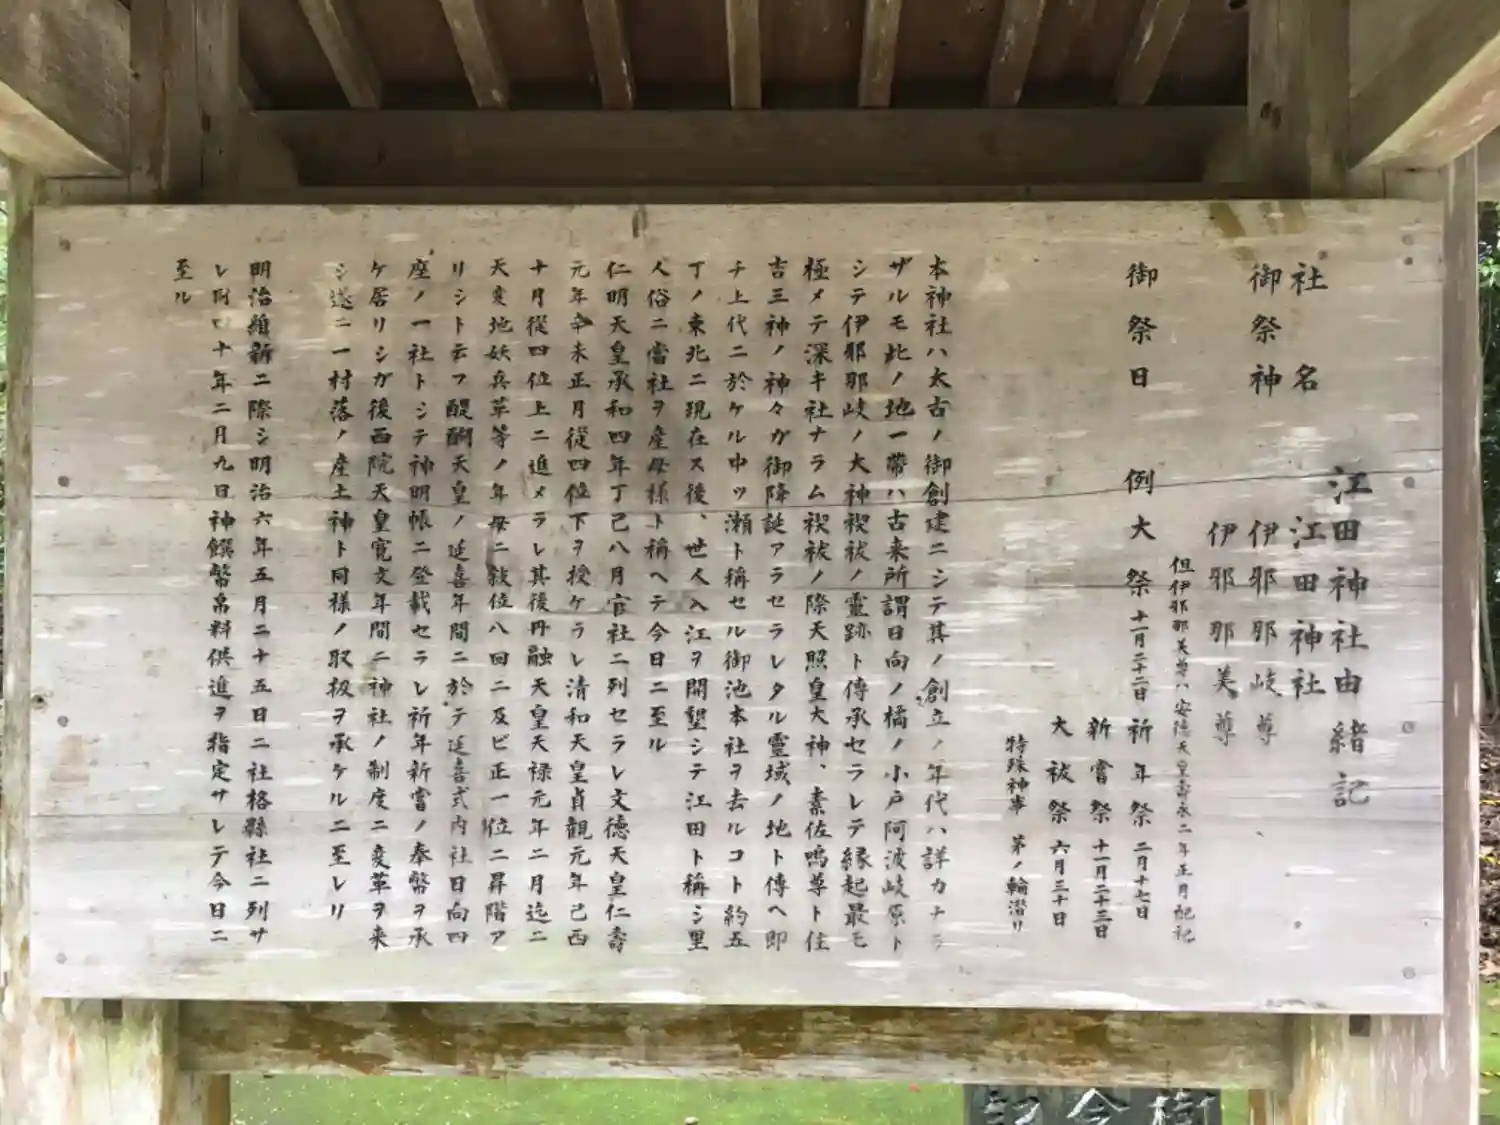 江田神社由緒記
社名 江田神社
御祭神 伊邪那岐尊
伊邪那美尊
但伊邪那美尊ハ安徳天皇壽永二年正月配祀
御祭日 例大祭 十一月二十二日 祈年祭 二月十七日
新嘗祭 十一月二十三日
大祓祭 六月三十日
特殊神事 茅ノ輪潜リ
本神社ハ太古ノ御創建ニシテ其ノ創立ノ年代ハ詳カナラ
ザルモ此ノ地一帶ハ古来所謂日向ノ橘ノ小戸阿波岐原ト
シテ伊邪那岐ノ大神禊祓ノ靈跡ト傳承セラレテ縁起最モ
極メテ深キ社ナラム禊祓ノ際天照皇大神、素佐鳴尊ト住
吉三神ノ神々ガ御降誕アラセラレタル靈域ノ地ト傳ヘ即
チ上代ニ於ケル中ツ瀬ト稱セル御池本社ヲ去ルコト約五
丁ノ東北ニ現在ス後、世人入江ヲ開墾シテ江田ト稱シ里
人俗ニ當社ヲ産母様ト稱ヘテ今日ニ至ル
仁明天皇承和四年丁己八月官社ニ列セラレ文徳天皇仁壽
元年辛未正月從四位下ヲ授ケラレ清和天皇貞観元年己酉
十月從四位上ニ進メラレ其後円融天皇天禄元年二月迄ニ
天変地妖兵革等ノ年毎ニ敍位八回ニ及ビ正一位ニ昇階ア
リシト云フ醍醐天皇ノ延喜年間ニ於テ延喜式内社日向四
座ノ一社トシテ神明帳ニ登載セラレ祈年新嘗ノ奉幣ヲ承
ケ居リシガ後西院天皇寛文年間ニ神社ノ制度ニ変革ヲ来
シ遂ニ一村落ノ産土神ト同様ノ取扱ヲ承ケルニ至レリ
明治維新ニ際シ明治六年五月二十五日ニ社格縣社ニ列サ
レ同四十年二月九日神饌幣帛料供進ヲ指定サレテ今日ニ
至ル